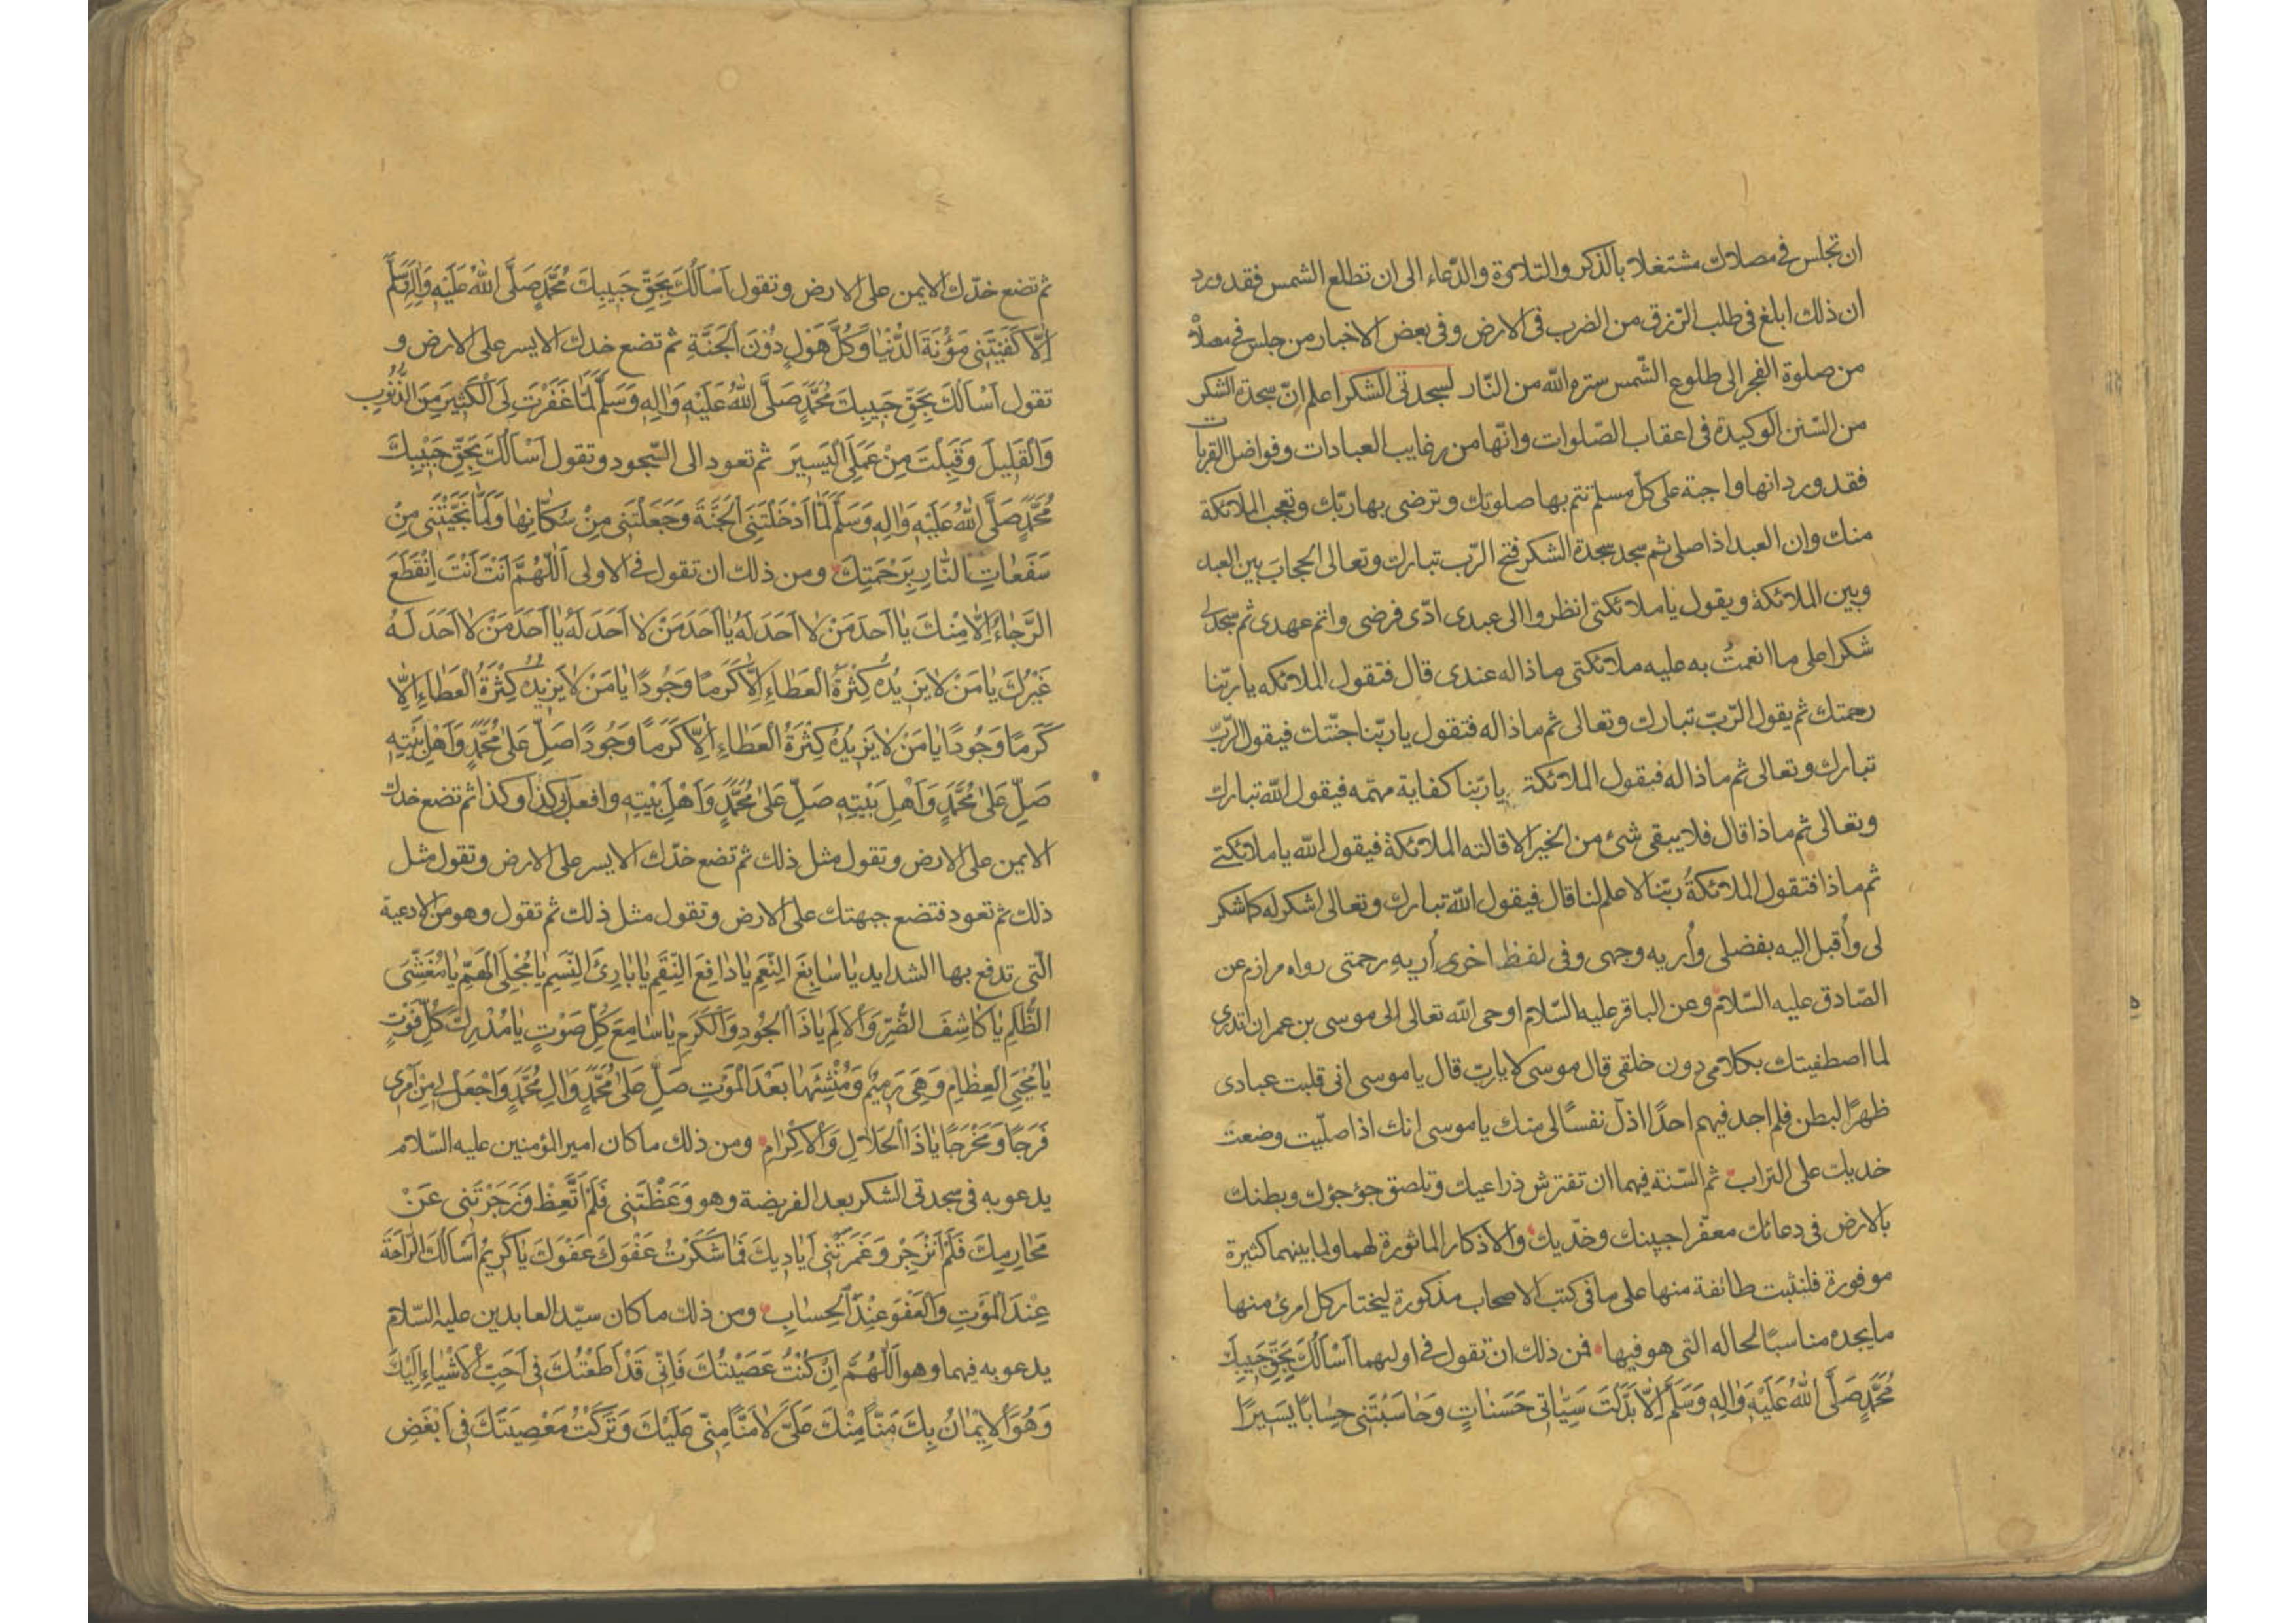 ان تجلس في مصلاك مشتغلا بالذكر والتلاوة والدّعاء الى ان تطلع الشمس فقد ورد
ان ذلك ابلغ فى طلب الرّزق من الضرب فى الارض وفى بعض الاخبار من جلس فى مصلاه
من صلوة الفجر الى طلوع الشّمس ستره الله من النّار لسجدتى الشكر اعلم انّ سجدة الشكر
من السّنن الوكيدة فى اعقاب الصّلوات وانّها من رغايب العبادات وفواضل القربات
فقد ورد انها واجبة على كلّ مسلم تتم بها صلوتك وترضى بها ربّك وتعجب الملائكة
منك وان العبد اذا صلى ثم سجد سجدة الشكر فتح الرّب تبارك وتعالى الحجاب بين العبد
وبين الملائكة ويقول يا ملائكتى انظروا الى عبدى ادّى فرضى واتم عهدى ثم سجد لى
شكرا على ما انعمتُ به عليه ملائكتى ماذا له عندى قال فتقول الملائكه يا ربّنا
رحمتك ثم يقول الرّبّ تبارك وتعالى ثم ماذا له فتقول يا ربّنا جنّتك فيقول الرّبّ
تبارك وتعالى ثم ماذا له فيقول الملائكة يا ربّنا كفاية مهمّه فيقول الله تبارك
وتعالى ثم ماذا قال فلا يبقى شئ من الخير الا قالته الملائكة فيقول الله يا ملائكتى
ثم ماذا فتقول الملائكةُ ربّنا لا علم لنا قال فيقول الله تبارك وتعالى اشكر له كما شكر
لى وأُقبل اليه بفضلى وأُريه وجهى وفى لفظ اخرى أُريه رحمتى رواه مرازم عن
الصّادق عليه السّلام وعن الباقر عليه السّلام اوحى الله تعالى الى موسى بن عمران اتدرى
لما اصطفيتك بكلامى دون خلقى قال موسى لا يا ربّ قال يا موسى انى قلبت عبادى
ظهرًا لبطن فلم اجد فيهم احدًا اذلّ نفسًا لى منك يا موسى انك اذا صلّيت وضعت
خديك على التراب ثم السّنة فيهما ان تفترش ذراعيك وتلصق جؤجؤك وبطنك
بالارض فى دعائك معفّرا جبينك وخدّيك والاذكار الماثورة لهما ولما بينهما كثيرة
موفورة فلنثبت طائفة منها على ما فى كتب الاصحاب مذكورة ليختار كل امرئ منها
ما يجده مناسبًا لحاله التى هو فيها فمن ذلك ان تقول فى اوليهما اَسْاَلُكَ بِحَقِّ حَبيبِكَ
مُحَمَّدٍ صَلَّى اللهُ عَلَيْهِ وَالِهِ وَسَلَّمَ اِلّا بَدَّلْتَ سَيِّئاتى حَسَناتٍ وَحاسَبْتَنى حِسابًا يَسيرًا
ثم تضع خدّك الايمن على الارض وتقول اَسْاَلُكَ بِحَقِّ حَبيبِكَ مُحَمَّدٍ صَلَّى اللهُ عَلَيْهِ وَالِهِ وَسَلَّمَ
اِلّا كَفَيْتَنى مَؤُنَةَ الدُّنْيا وَكُلَّ هَوْلٍ دُونَ الجَنَّةِ ثم تضع خدك الايسر على الارض و
تقول اَسْاَلُكَ بِحَقِّ حَبيبِكَ مُحَمَّدٍ صَلَّى اللهُ عَلَيْهِ وَالِهِ وَسَلَّمَ لَمّا غَفَرْتَ لِىَ الْكَثيرَ مِنَ الذُّنُوبِ
وَالْقَليلَ وَقَبِلْتَ مِنْ عَمَلِىَ الْيَسيرَ ثم تعود الى السّجود وتقول اَسْاَلُكَ بِحَقِّ حَبيبِكَ
مُحَمَّدٍ صَلَّى اللهُ عَلَيْهِ وَالِهِ وَسَلَّمَ لَمّا اَدْخَلْتَنِى الْجَنَّةَ وَجَعَلْتَنى مِنْ سُكّانِها وَلَمّا نَجَّيْتَنى مِنْ
سَفَعاتِ النّارِ بِرَحْمَتِكَ ومن ذلك ان تقول فى الاولى اَللّهُمَّ اَنْتَ اَنْتَ اِنْقَطَعَ
الرَّجاءُ اِلّا مِنْكَ يا اَحَدَ مَنْ لا اَحَدَ لَهُ يا اَحَدَ مَنْ لا اَحَدَ لَهُ يا اَحَدَ مَنْ لا اَحَدَ لَهُ
غَيْرُكَ يا مَنْ لا يَزيدُهُ كِثْرَةُ الْعَطاءِ اِلّا كَرَمًا وَجُودًا يا مَنْ لا يَزيدُهُ كِثْرَةُ الْعَطاءِ اِلّا
كَرَمًا وَجُودًا يا مَنْ لا يَزيدُهُ كِثْرَةُ الْعَطاءِ اِلّا كَرَمًا وَجُودًا صَلِّ عَلى مُحَمَّدٍ وَاَهْلِ بَيْتِهِ
صَلِّ عَلى مُحَمَّدٍ وَاَهْلِ بَيْتِهِ صَلِّ عَلى مُحَمَّدٍ وَاَهْلِ بَيْتِهِ وافعل بى كذا وكذا ثم تضع خدك
الايمن على الارض وتقول مثل ذلك ثم تضع خدّك الايسر على الارض وتقول مثل
ذلك ثم تعود فتضع جبهتك على الارض وتقول مثل ذلك ثم تقول وهو من الادعية
الّتى تدفع بها الشدايد يا سابِغَ النِّعَمِ يا دافِعَ النِّقَمِ يا بارِئَ النَّسَمِ يا مُجْلِىَ الْهَمِّ يا مُغَشِّىَ
الظُّلَمِ يا كاشِفَ الضُّرِّ وَالاَلَمِ يا ذَا الْجُودِ وَالْكَرَمِ يا سامِعَ كُلِّ صَوْتٍ يا مُدْرِكَ كُلِّ فَوْتٍ
يا مُحْيِىَ الْعِظامِ وَهِىَ رَميمٌ وَمُنْشِئَها بَعْدَ الْمَوْتِ صَلِّ عَلى مُحَمَّدٍ وَالِ مُحَمَّدٍ وَاجْعَلْ لى مِنْ اَمْرى
فَرَجًا وَمَخْرَجًا يا ذَا الْجَلالِ وَالاِكْرامِ ومن ذلك ما كان امير المؤمنين عليه السّلام
يدعو به فى سجدتى الشكر بعد الفريضة وهو وَعَظْتَنى فَلَمْ اَتَّعِظْ وَزَجَرْتَنى عَنْ
مَحارِمِكَ فَلَمْ اَنْزَجِرْ وَغَمَرْتَنى اَياديكَ فَما شَكَرْتُ عَفْوَكَ عَفْوَكَ يا كَريمُ اَسْاَلُكَ الرّاحَةَ
عِنْدَ الْمَوْتِ وَالْعَفْوَ عِنْدَ الْحِسابِ ومن ذلك ما كان سيّد العابدين عليه السّلام
يدعو به فيهما وهو اَللّهُمَّ اِنْ كُنْتُ عَصَيْتُكَ فَاِنّى قَدْ اَطَعْتُكَ فى اَحَبِّ الاَشْياءِ اِلَيْكَ
وَهُوَ الاِيْمانُ بِكَ مَنًّا مِنْكَ عَلَىَّ لا مَنًّا مِنّى عَلَيْكَ وَتَرَكْتُ مَعْصِيَتَكَ فى اَبْغَضِ